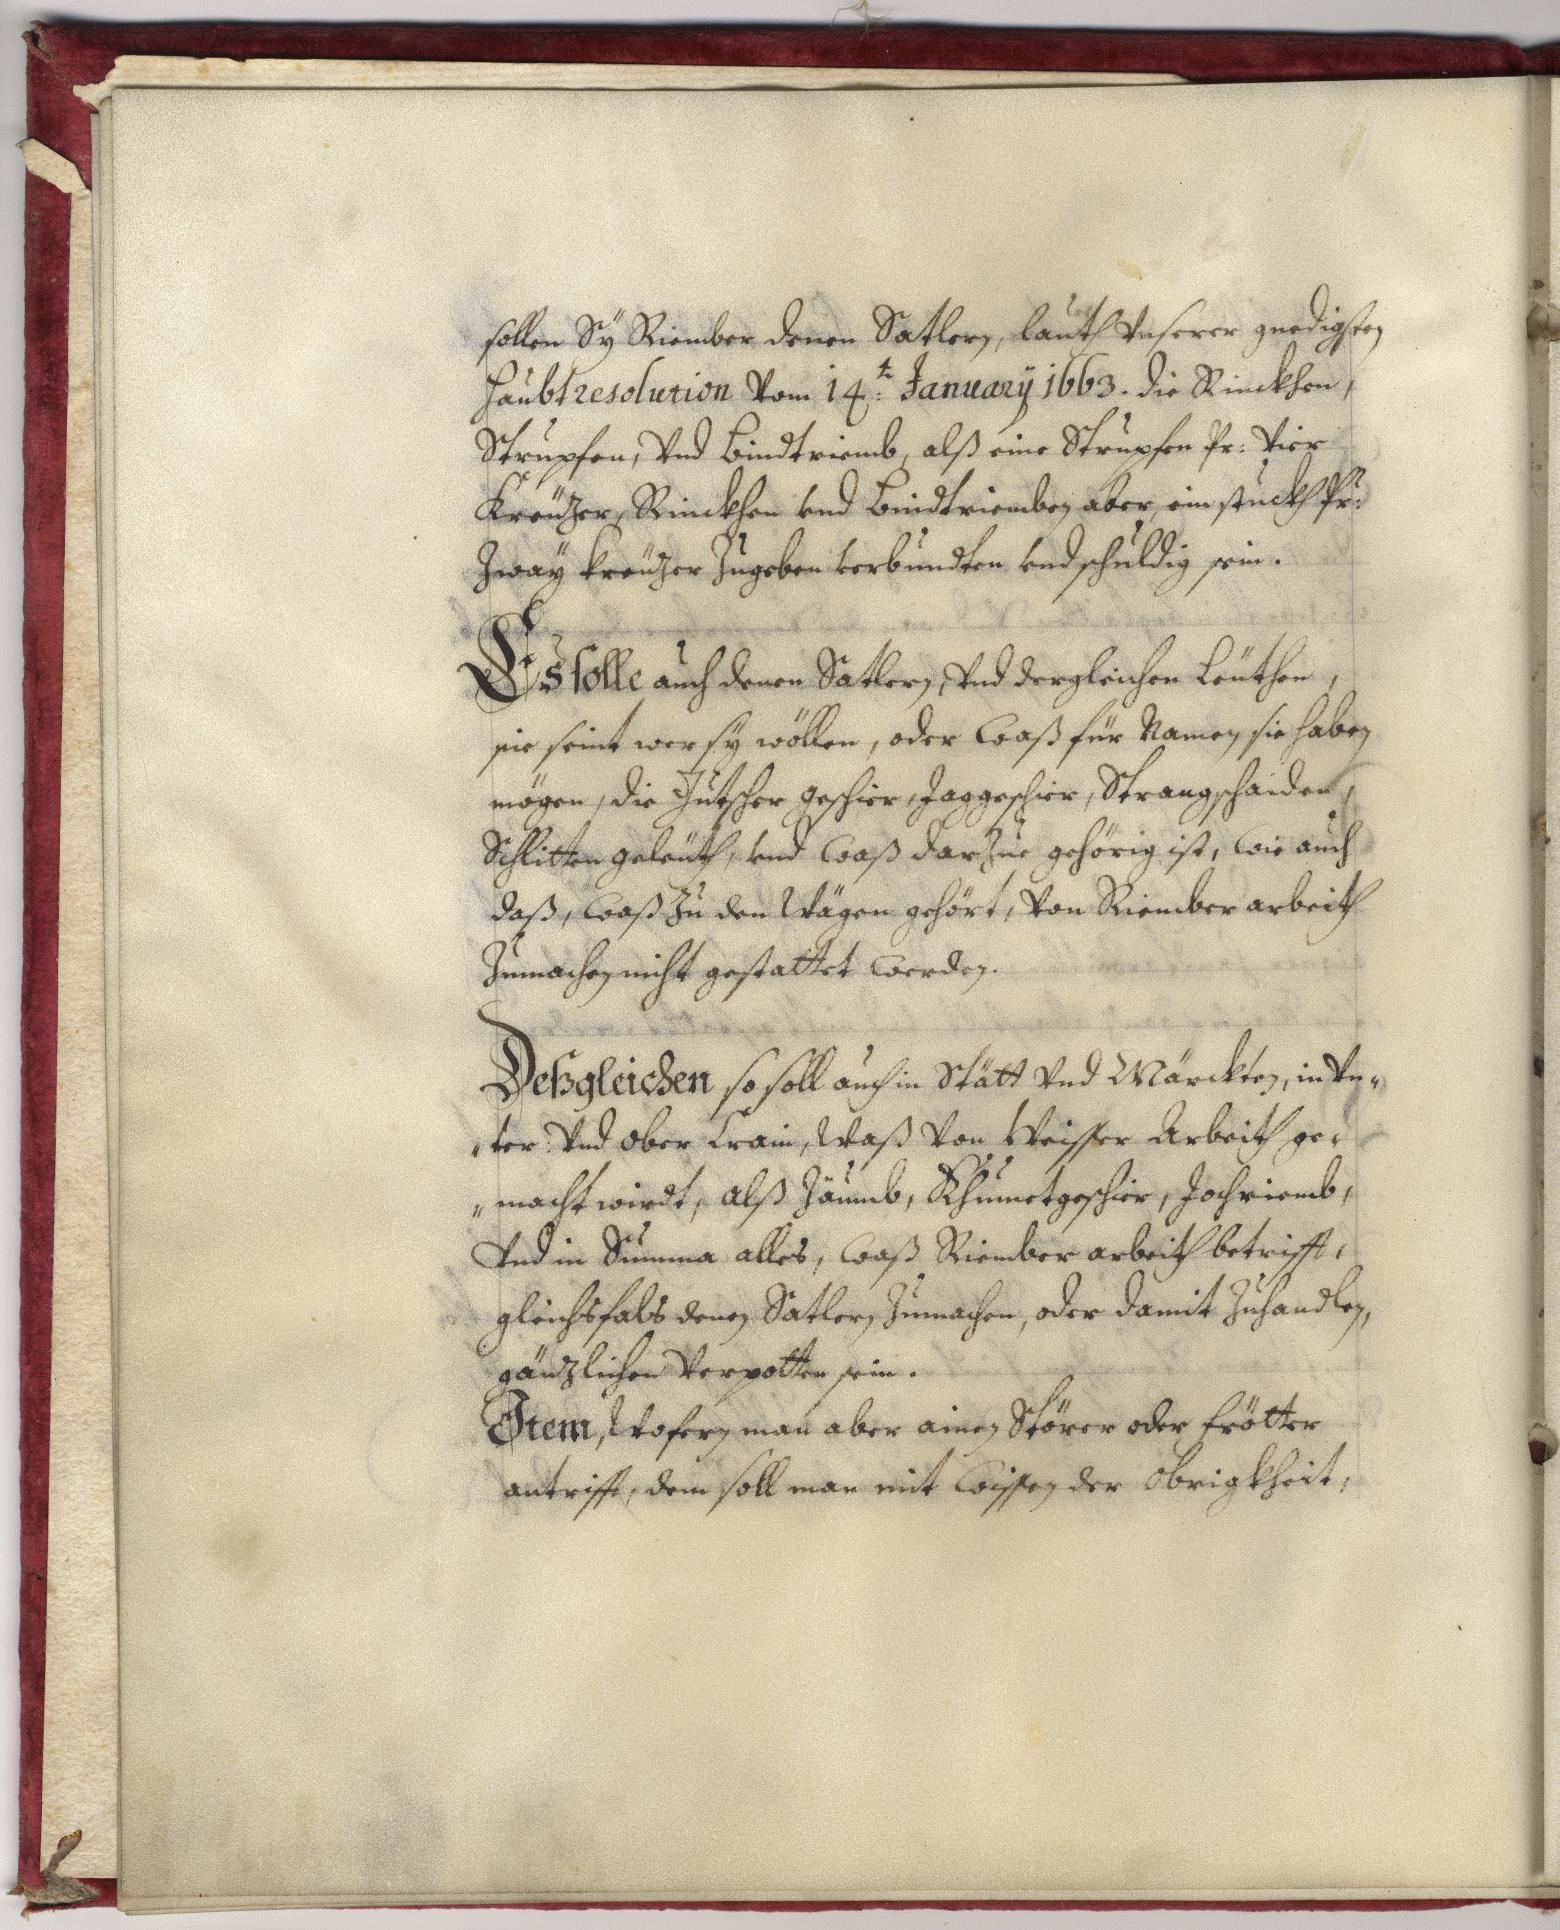 sollen Sÿ Riember denen Satlern, lauth Vnserer gnedigsten
Haubtresolution Vom 14.t: Januarÿ 1663. die Rinckhen,
Strupfen, Vnd Bindtriemb, alß eine Strupfen Pr: Vier
Kreüzer, Rinckhen vnd Bindtriemben aber, ein stuckh Pr:
Zwaÿ kreüzer Zugeben verbundten vnd schuldig sein.
Es solle auch denen Satlern, Vnd dergleichen Leüthen,
sie seint wer sÿ wöllen, oder Waß für Namen sie haben
mögen, die Gutscher geschier, Jaggeschier, Strangschaiden,
Schlitten geleüth, vnd Waß darZue gehörig ist, Wie auch
daß, Waß Zu den Wägen gehört, Von Riember arbeith
Zumachen nicht gestattet Werden.
Deßgleichen so soll auch in Stätt Vnd Märckten, in Vn„
„ter: Vnd ober Crain, Waß Von Weisser Arbeith ge„
„macht wirdt, alß Zäumb, Khumetgeschier, Jochriemb,
Vnd in Summa alles, Waß Riember arbeith betrifft,
gleichsfals denen Satlern Zumachen, oder damit Zuhandlen,
gänzlichen Verpotten sein.
Item, Wofern man aber ainen Störer oder Frötter
antrifft, dem soll man mit Wissen der Obrigkheit,